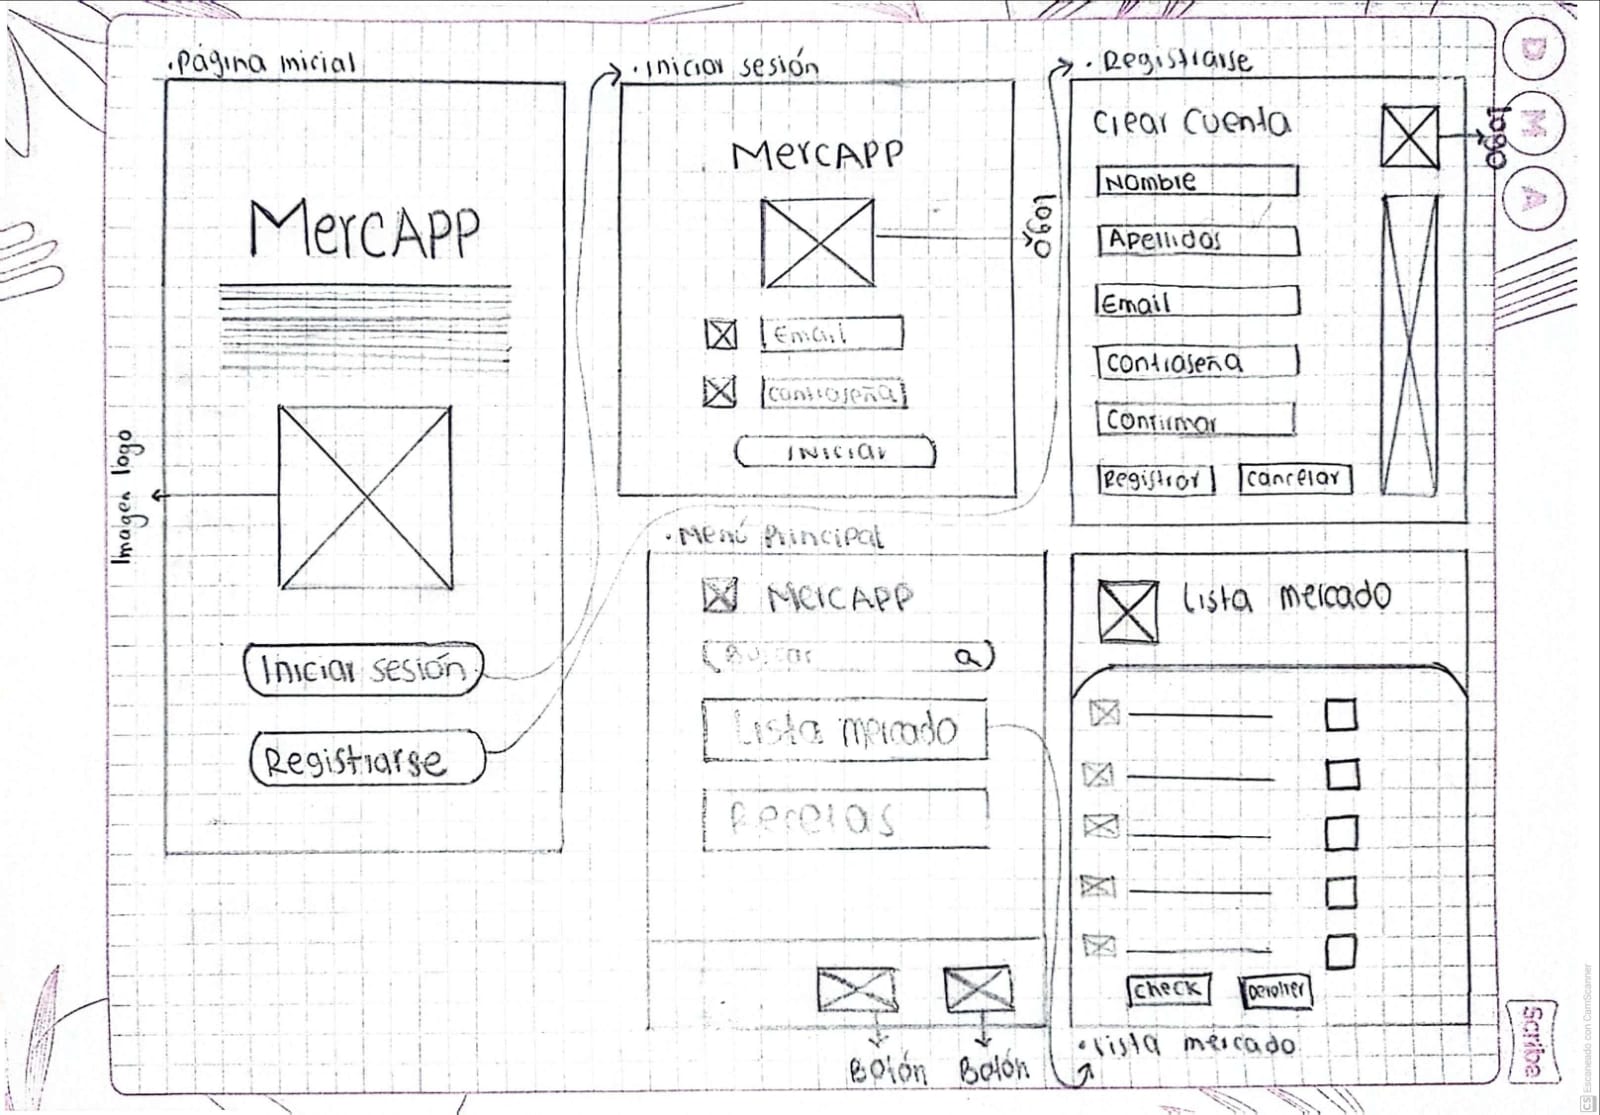 .Página inicial
MercAPP
Imagen logo
Iniciar sesión
Registrarse
.Iniciar sesión
MercAPP
logo
Email
contraseña
Iniciar
. Registrarse
Crear cuenta
logo
Nombre
Apellidos
Email
contraseña
Confirmar
Registrar
cancelar
.Menú Principal
MercAPP
Buscar
Lista mercado
Recetas
Botón
Botón
Lista mercado
check
Devolver
.Lista mercado
D
M
A
Scribe
CS Escaneado con CamScanner